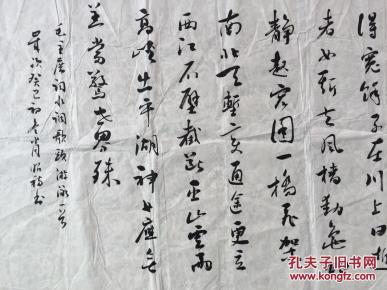 得宽馀子在川上曰逝
者如斯夫风樯动龟蛇
静起宏图一桥飞架
南北天堑变通途更立
西江石壁截断巫山云雨
高峡出平湖神女应无
恙当惊世界殊
毛主席词水调歌头游泳一首
癸巳初冬月
书
孔夫子旧书网